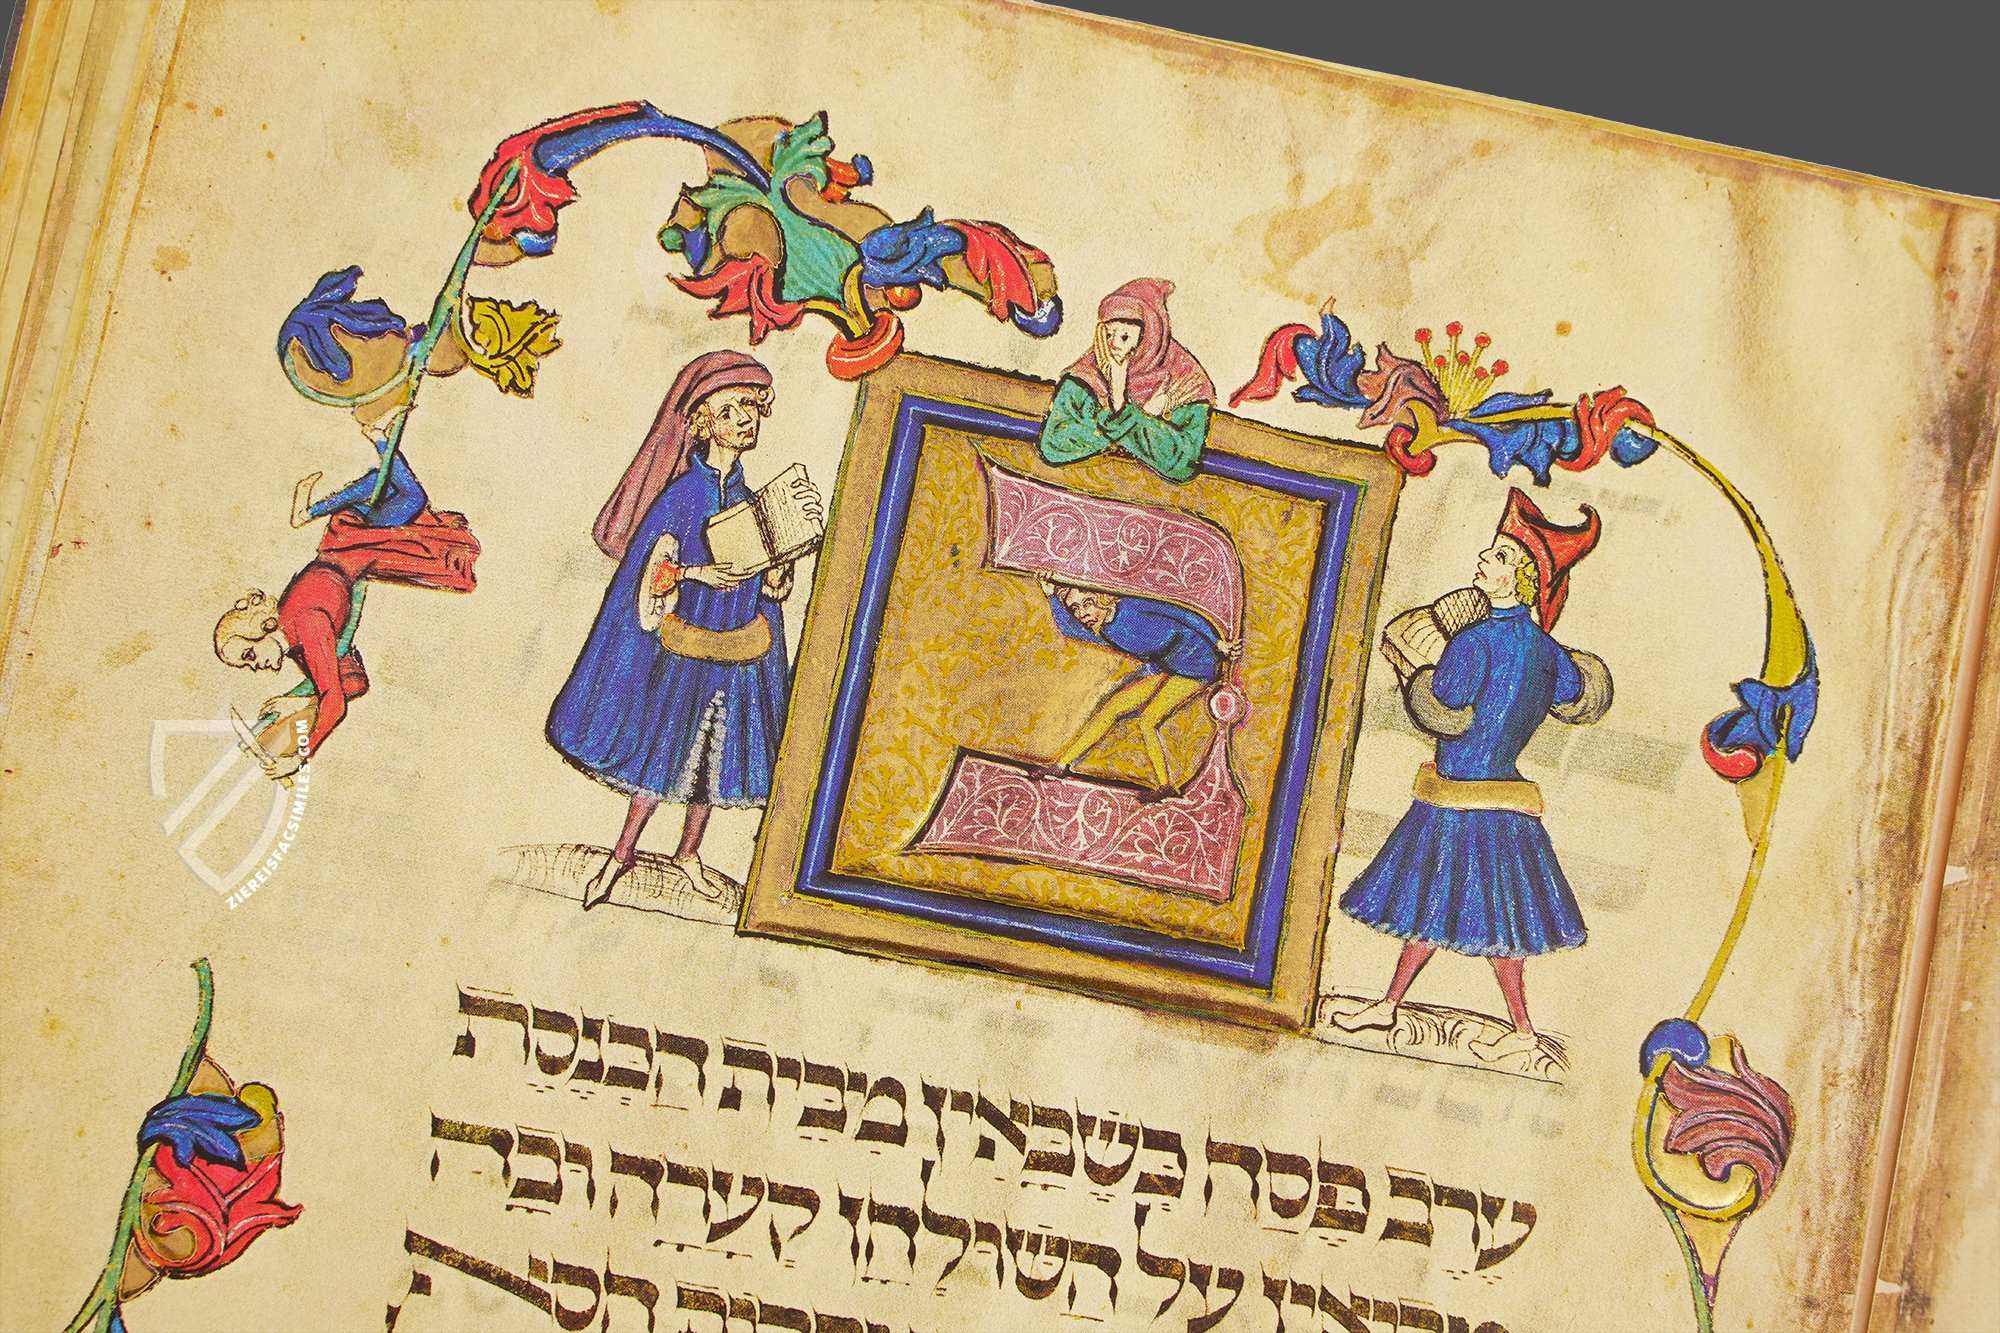 ב
עֶרֶב פֶּסַח כְּשֶׁבָּאִין מִבֵּית הַכְּנֶסֶת
מביאין עַל הַשּׁוּלְחָן קְעָרָה וּבָהּ
ZIEREISFACSIMILES.COM